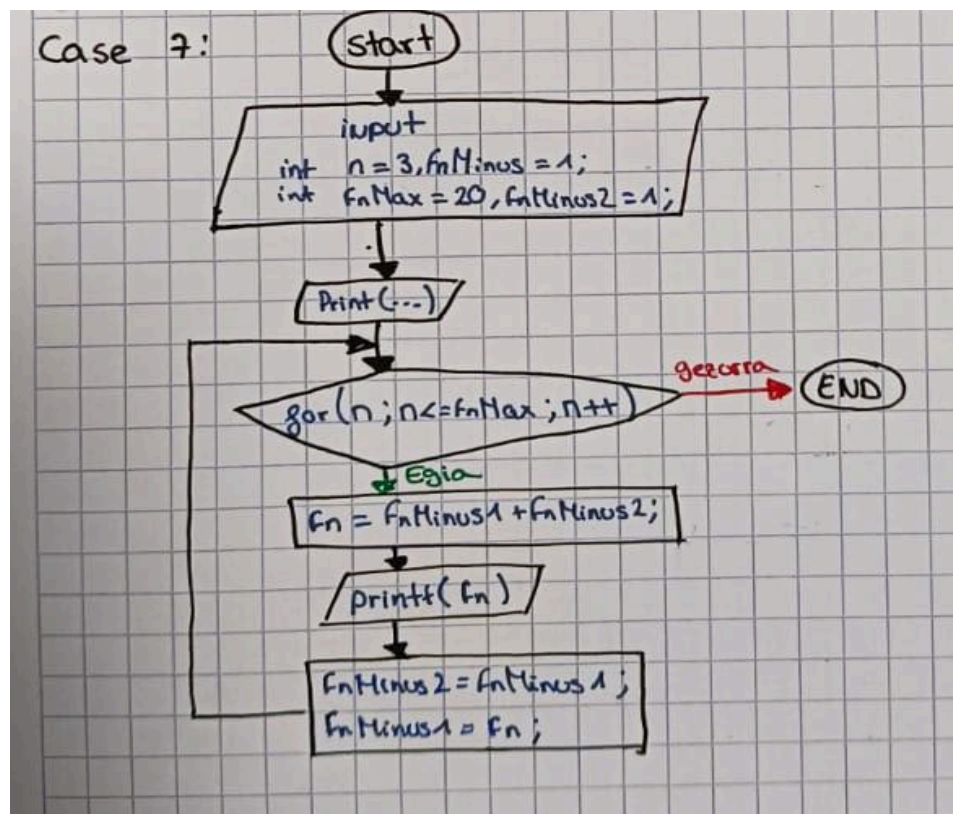 Case 7:
Start
input
int n = 3, fnMinus = 1;
int fnMax = 20, fnMinus2 = 1;
Print(...)
for(n; n<=fnMax; n++)
gezurra
END
Egia
fn = fnMinus1 + fnMinus2;
printf(fn)
fnMinus2 = fnMinus1;
fnMinus1 = fn;